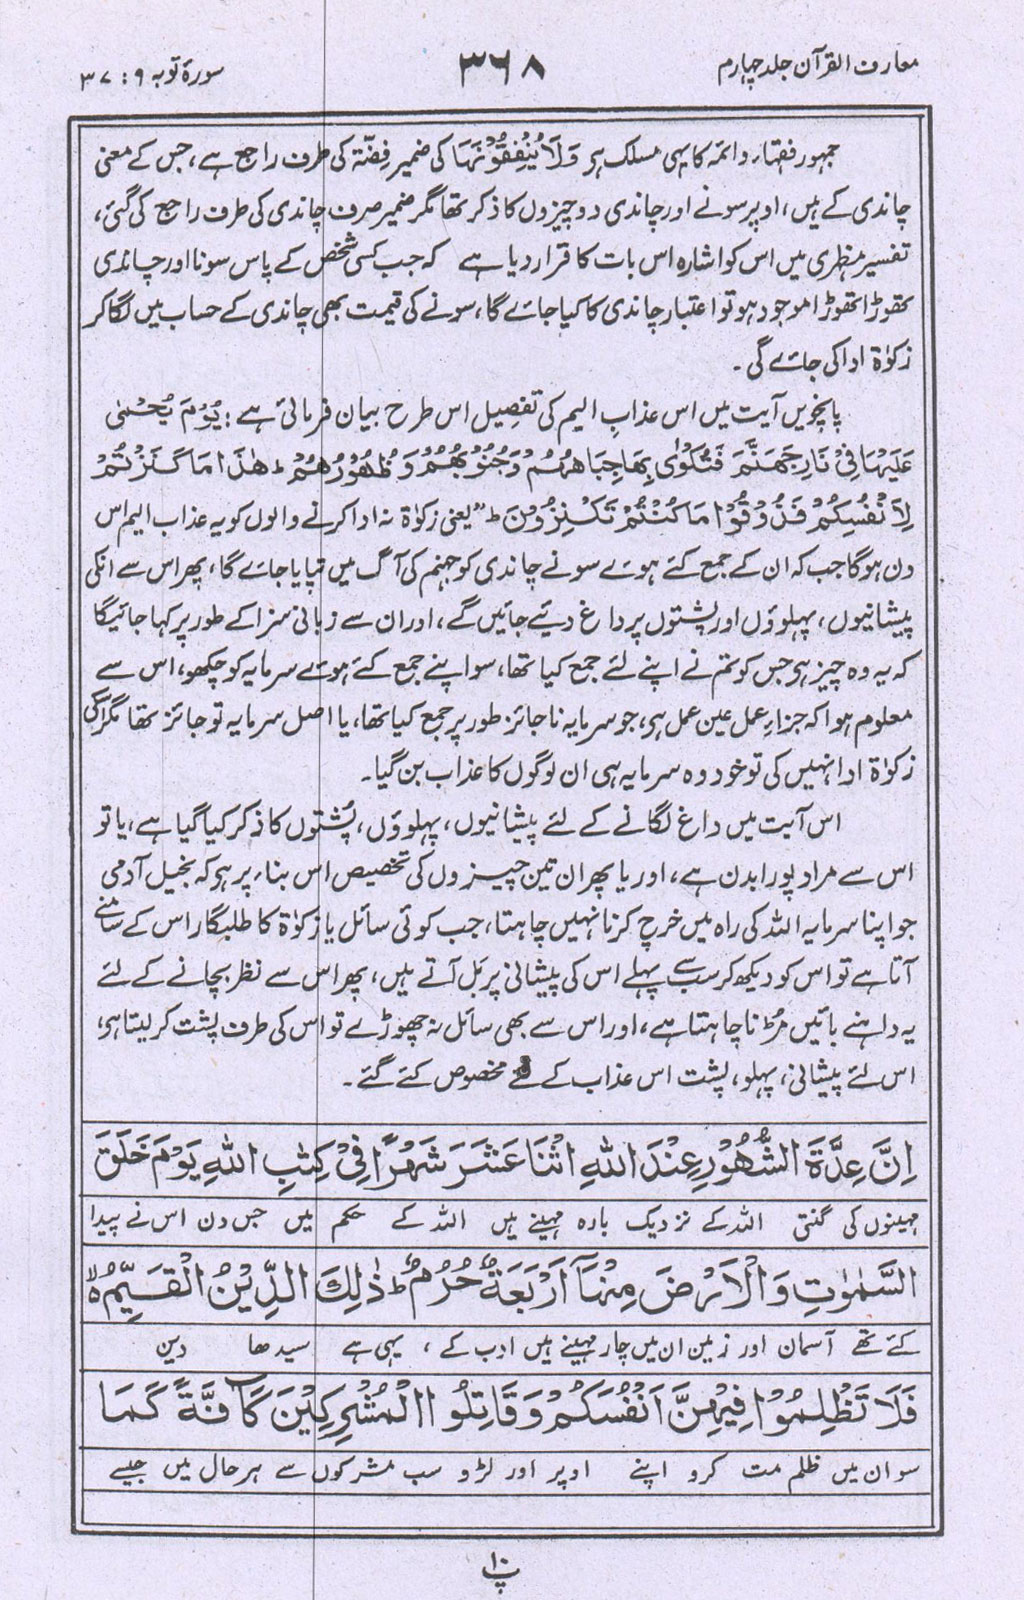 معارف القرآن جلد چہارم
۳۶۸
سورۂ توبہ ۹ : ۳۷
جمہور فقہار وائمہ کا یہی مسلک ہی وَلَا یُنْفِقُوْنَہَا کی ضمیر فِضّۃ کی طرف راجع ہے، جس کے معنی
چاندی کے ہیں، اوپر سونے اور چاندی دو چیزوں کا ذکر تھا مگر ضمیر صرف چاندی کی طرف راجع کی گئی،
تفسیر مظہری میں اس کو اشارہ اس بات کا قرار دیا ہے کہ جب کسی شخص کے پاس سونا اور چاندی
تھوڑا تھوڑا موجود ہو تو اعتبار چاندی کا کیا جائے گا، سونے کی قیمت بھی چاندی کے حساب میں لگا کر
زکوٰۃ ادا کی جائے گی۔
پانچویں آیت میں اس عذاب الیم کی تفصیل اس طرح بیان فرمائی ہے: یَوْمَ یُحْمٰی
عَلَیْہَا فِیْ نَارِ جَہَنَّمَ فَتُکْوٰی بِہَا جِبَاہُہُمْ وَجُنُوْبُہُمْ وَظُہُوْرُہُمْ ؕ ہٰذَا مَا کَنَزْتُمْ
لِاَنْفُسِکُمْ فَذُوْقُوْا مَا کُنْتُمْ تَکْنِزُوْنَ ؕ“ یعنی زکوٰۃ نہ ادا کرنے والوں کو یہ عذاب الیم اس
دن ہوگا جب کہ ان کے جمع کئے ہوئے سونے چاندی کو جہنم کی آگ میں تپایا جائے گا، پھر اس سے انکی
پیشانیوں، پہلوؤں اور پشتوں پر داغ دیئے جائیں گے، اور ان سے زبانی سزا کے طور پر کہا جائیگا
کہ یہ وہ چیز ہی جس کو تم نے اپنے لئے جمع کیا تھا، سو اپنے جمع کئے ہوئے سرمایہ کو چکھو، اس سے
معلوم ہوا کہ جزاء عمل عین عمل ہی، جو سرمایہ ناجائز طور پر جمع کیا تھا، یا اصل سرمایہ تو جائز تھا مگر اسکی
زکوٰۃ ادا نہیں کی تو خود وہ سرمایہ ہی ان لوگوں کا عذاب بن گیا۔
اس آیت میں داغ لگانے کے لئے پیشانیوں، پہلوؤں، پُشتوں کا ذکر کیا گیا ہے، یا تو
اس سے مراد پورا بدن ہے، اور یا پھر ان تین چیزوں کی تخصیص اس بناء پر ہی کہ بخیل آدمی
جو اپنا سرمایہ اللہ کی راہ میں خرچ کرنا نہیں چاہتا، جب کوئی سائل یا زکوٰۃ کا طلبگار اس کے سامنے
آتا ہے تو اس کو دیکھ کر سب سے پہلے اس کی پیشانی پر بَل آتے ہیں، پھر اس سے نظر بچانے کے لئے
یہ داہنے بائیں مُڑنا چاہتا ہے، اور اس سے بھی سائل نہ چھوڑے تو اس کی طرف پشت کر لیتا ہی،
اس لئے پیشانی، پہلو، پشت اس عذاب کے لئے مخصوص کئے گئے۔
اِنَّ عِدَّۃَ الشُّہُوْرِ عِنْدَ اللّٰہِ اثْنَا عَشَرَ شَہْرًا فِیْ کِتٰبِ اللّٰہِ یَوْمَ خَلَقَ
مہینوں کی گنتی اللہ کے نزدیک بارہ مہینے ہیں اللہ کے حکم میں جس دن اس نے پیدا
السَّمٰوٰتِ وَالْاَرْضَ مِنْہَاۤ اَرْبَعَۃٌ حُرُمٌ ؕ ذٰلِکَ الدِّیْنُ الْقَیِّمُ ۙ
کئے تھے آسمان اور زمین ان میں چار مہینے ہیں ادب کے ، یہی ہے سیدھا دین
فَلَا تَظْلِمُوْا فِیْہِنَّ اَنْفُسَکُمْ وَقَاتِلُوا الْمُشْرِکِیْنَ کَآفَّۃً کَمَا
سو ان میں ظلم مت کرو اپنے اوپر اور لڑو سب مشرکوں سے ہر حال میں جیسے
۱۰
پ